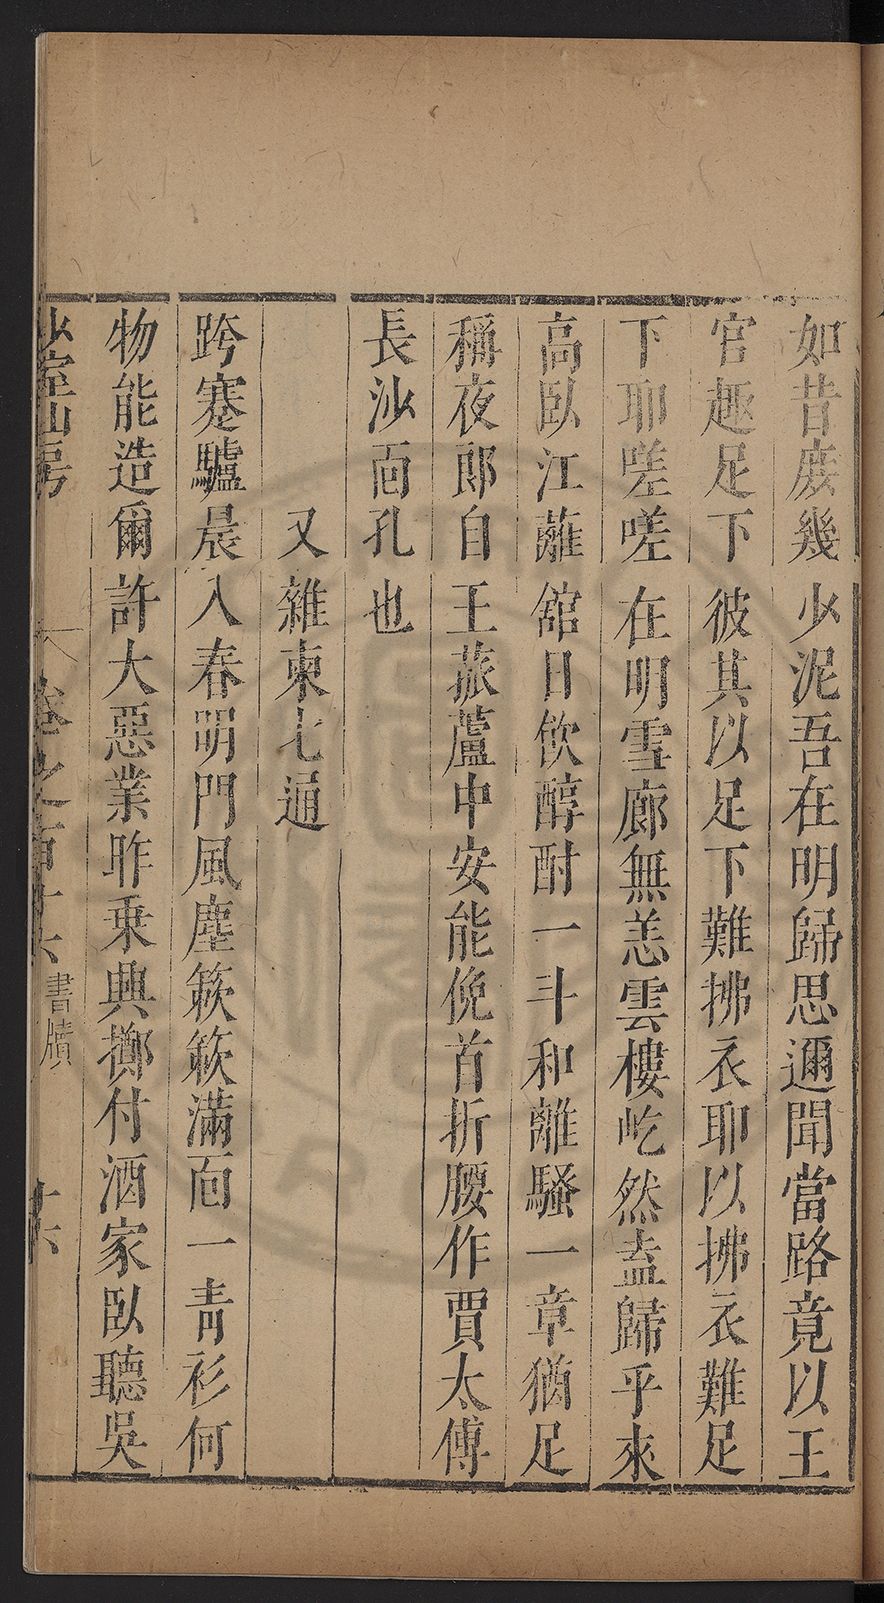 如昔庻幾少泥吾在明歸思邇聞當路竟以王
官趣足下彼其以足下難拂衣耶以拂衣難足
下耶嗟嗟在明雪廊無恙雲樓屹然盍歸乎來
高臥江蘺舘日飲醇酎一斗和離騷一章猶足
稱夜郎自王菰蘆中安能俛首折腰作賈太傅
長沙面孔也
又雜柬七通
跨蹇驢晨入春明門風塵簌簌滿面一青衫何
物能造爾許大惡業昨乘興擲付酒家臥聽吳
少室山房 卷之百十六 書牘 十六